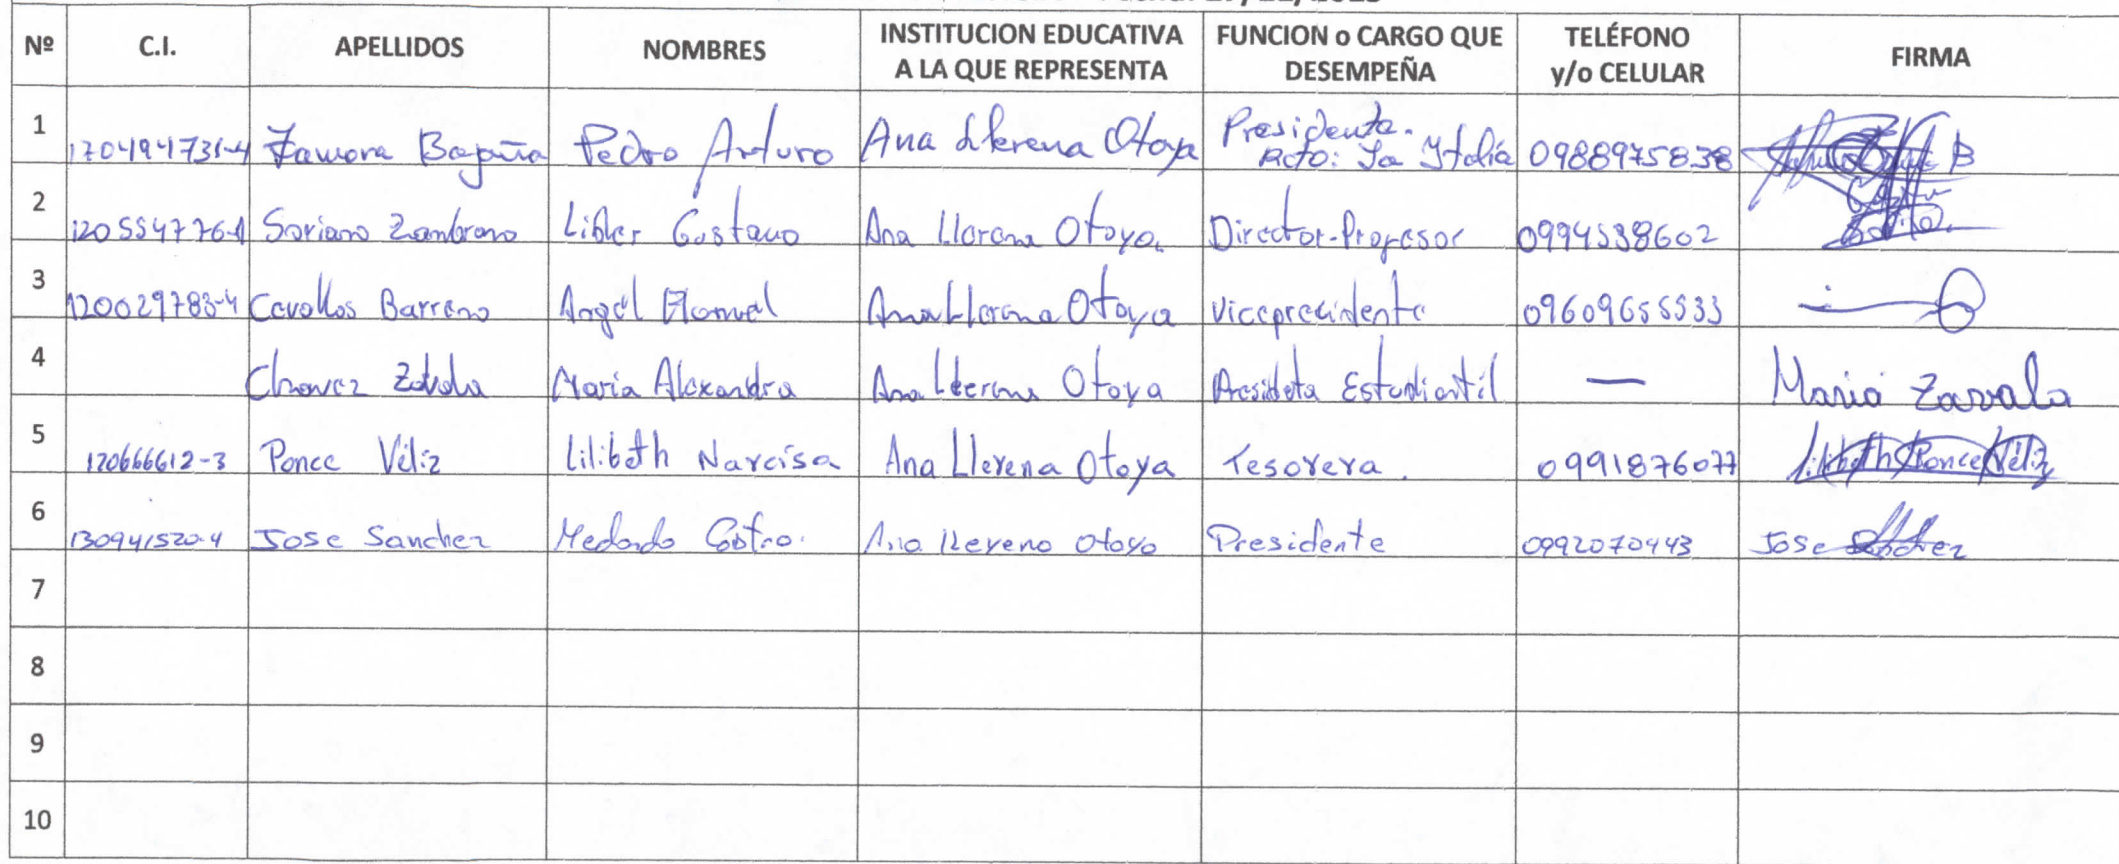 Nº C.I. APELLIDOS NOMBRES INSTITUCION EDUCATIVA A LA QUE REPRESENTA FUNCION o CARGO QUE DESEMPEÑA TELÉFONO y/o CELULAR FIRMA
1 170494731-4 Zamora Pedro Arturo Ana Llerena Otoya Presidente. Rcto: La Italia 0988975838
2 120554776-1 Soriano Zambrano Libler Gustavo Ana Llerena Otoya. Director-Profesor 0994538602
3 120029783-4 Cevallos Barreno Angel Manuel Ana Llerena Otoya Vicepresidente 0960965533
4 Chavez Zavala Maria Alexandra Ana Llerena Otoya Presideta Estudiantil — Maria Zavala
5 120666612-3 Ponce Véliz Lilibeth Narcisa Ana Llerena Otoya Tesorera. 0991876077 Lilibeth Ponce Véliz
6 130941520-4 Jose Sanchez Medardo Castro. Ana Llereno Otoya Presidente 0992070443 Jose Sanchez
7
8
9
10